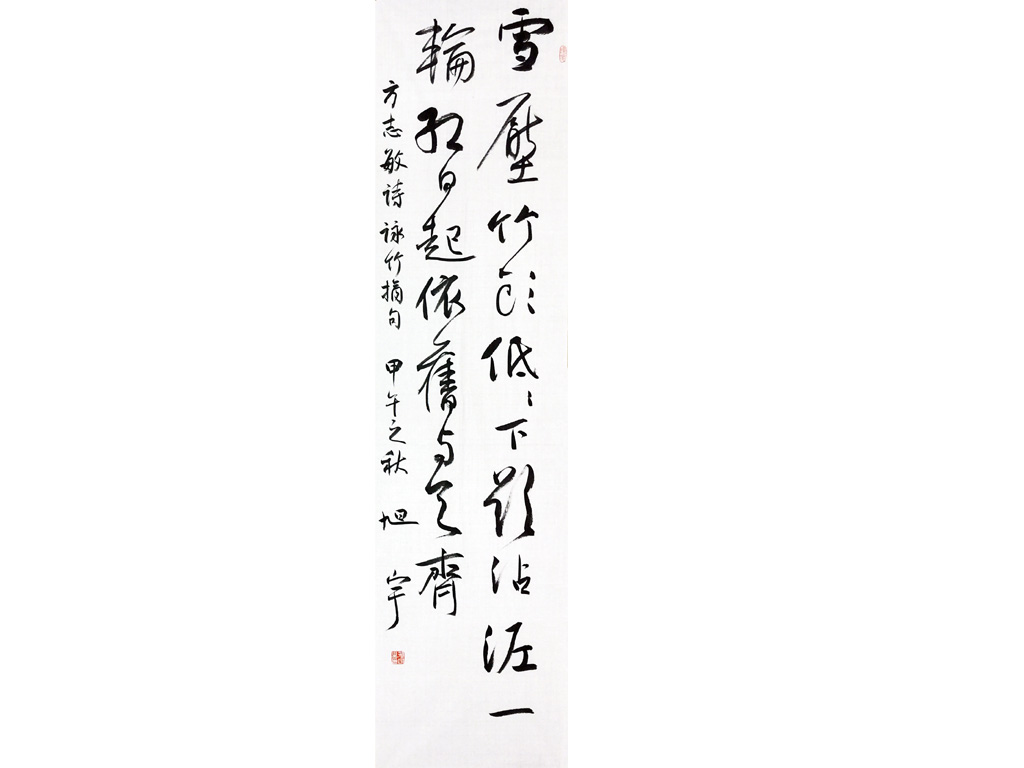 雪壓竹頭低〻下欲沾泥一
輪紅日起依舊与天齊
方志敏詩詠竹摘句 甲午之秋 旭宇